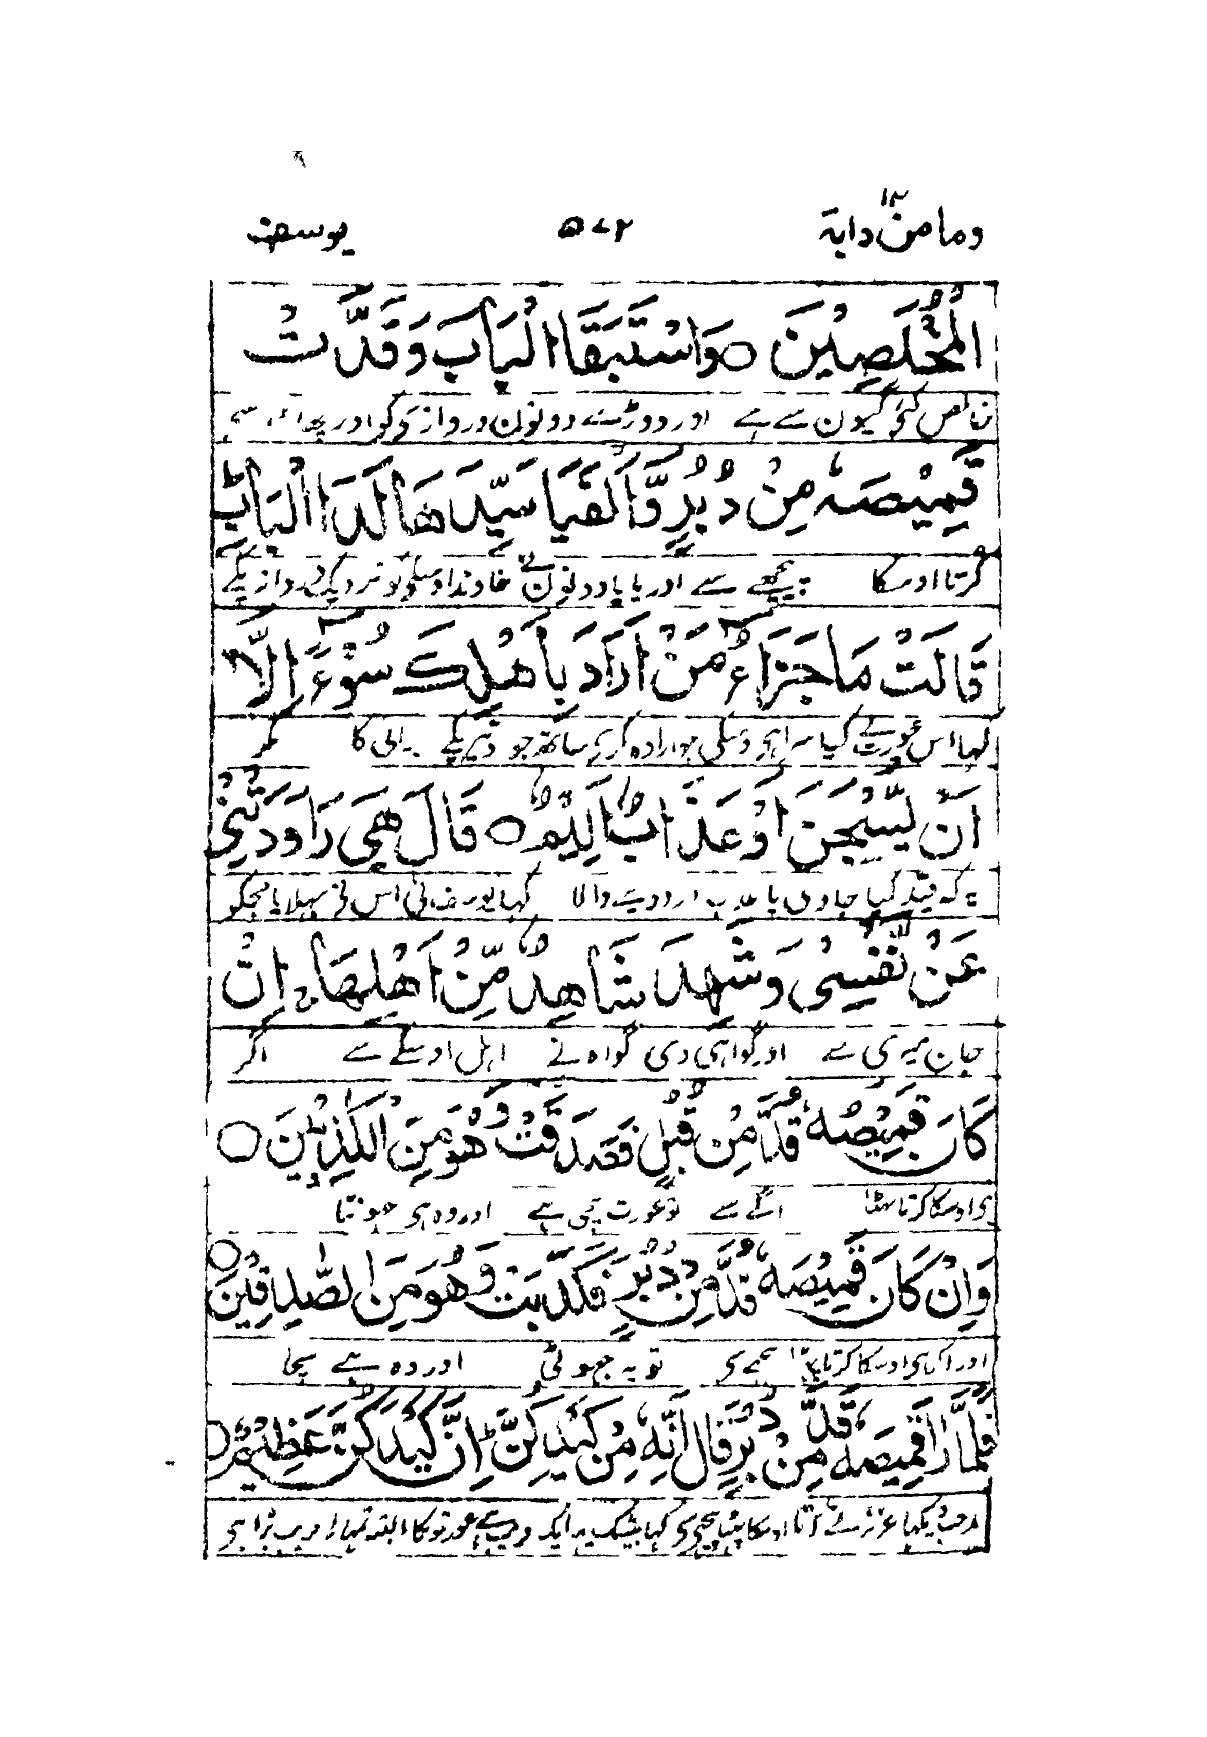 وما من دابة ۱۲ ۵۷۲ یوسف
الْمُخْلَصِيْنَ ○ وَاسْتَبَقَا الْبَابَ وَقَدَّتْ
خالص کئے گیون سے ہے اور دوڑے دونون دروازی کو اور
قَمِيْصَهٗ مِنْ دُبُرٍ وَّاَلْفَيَا سَيِّدَهَا لَدَا الْبَابِ ط
کرتا اوسکا پیچھے سے اور پایا دونون نے خاوند اوسکے کو نزدیک دروازیکے
قَالَتْ مَا جَزَآءُ مَنْ اَرَادَ بِاَهْلِكَ سُوْٓءًا اِلَّآ
کہا اس عورت نے کیا جو ارادہ کرے ساتھ جو کا مگر
اَنْ يُّسْجَنَ اَوْ عَذَابٌ اَلِيْمٌ ○ قَالَ هِيَ رَاوَدَتْنِيْ
یہ کہ قید کیا جاوی یا والا کہا یوسف نی اس نی پہلایا مجکو
عَنْ نَّفْسِيْ وَشَهِدَ شَاهِدٌ مِّنْ اَهْلِهَا ج اِنْ
جان میری سے اور گواہی دی گواہ نے اہل اوسکے سے اگر
كَانَ قَمِيْصُهٗ قُدَّ مِنْ قُبُلٍ فَصَدَقَتْ وَهُوَ مِنَ الْكٰذِبِيْنَ ○
ہی اوسکا کرتا پھٹا آگے سے تو عورت سچی ہے اور وہ ہی جھوٹا
وَاِنْ كَانَ قَمِيْصُهٗ قُدَّ مِنْ دُبُرٍ فَكَذَبَتْ وَهُوَ مِنَ الصّٰدِقِيْنَ ○
اور اگر ہی اوسکا کرتا پھٹا پیچھے سی تو یہ جھوٹی اور وہ ہے سچا
فَلَمَّا رَاٰ قَمِيْصَهٗ قُدَّ مِنْ دُبُرٍ قَالَ اِنَّهٗ مِنْ كَيْدِكُنَّ ط اِنَّ كَيْدَكُنَّ عَظِيْمٌ ○
دیکھا عزیز نے کرتا اوسکا پیچھی سی کہا بیشک یہ ایک فریب ہے عورتونکا البتہ تمہارا فریب بڑا ہی